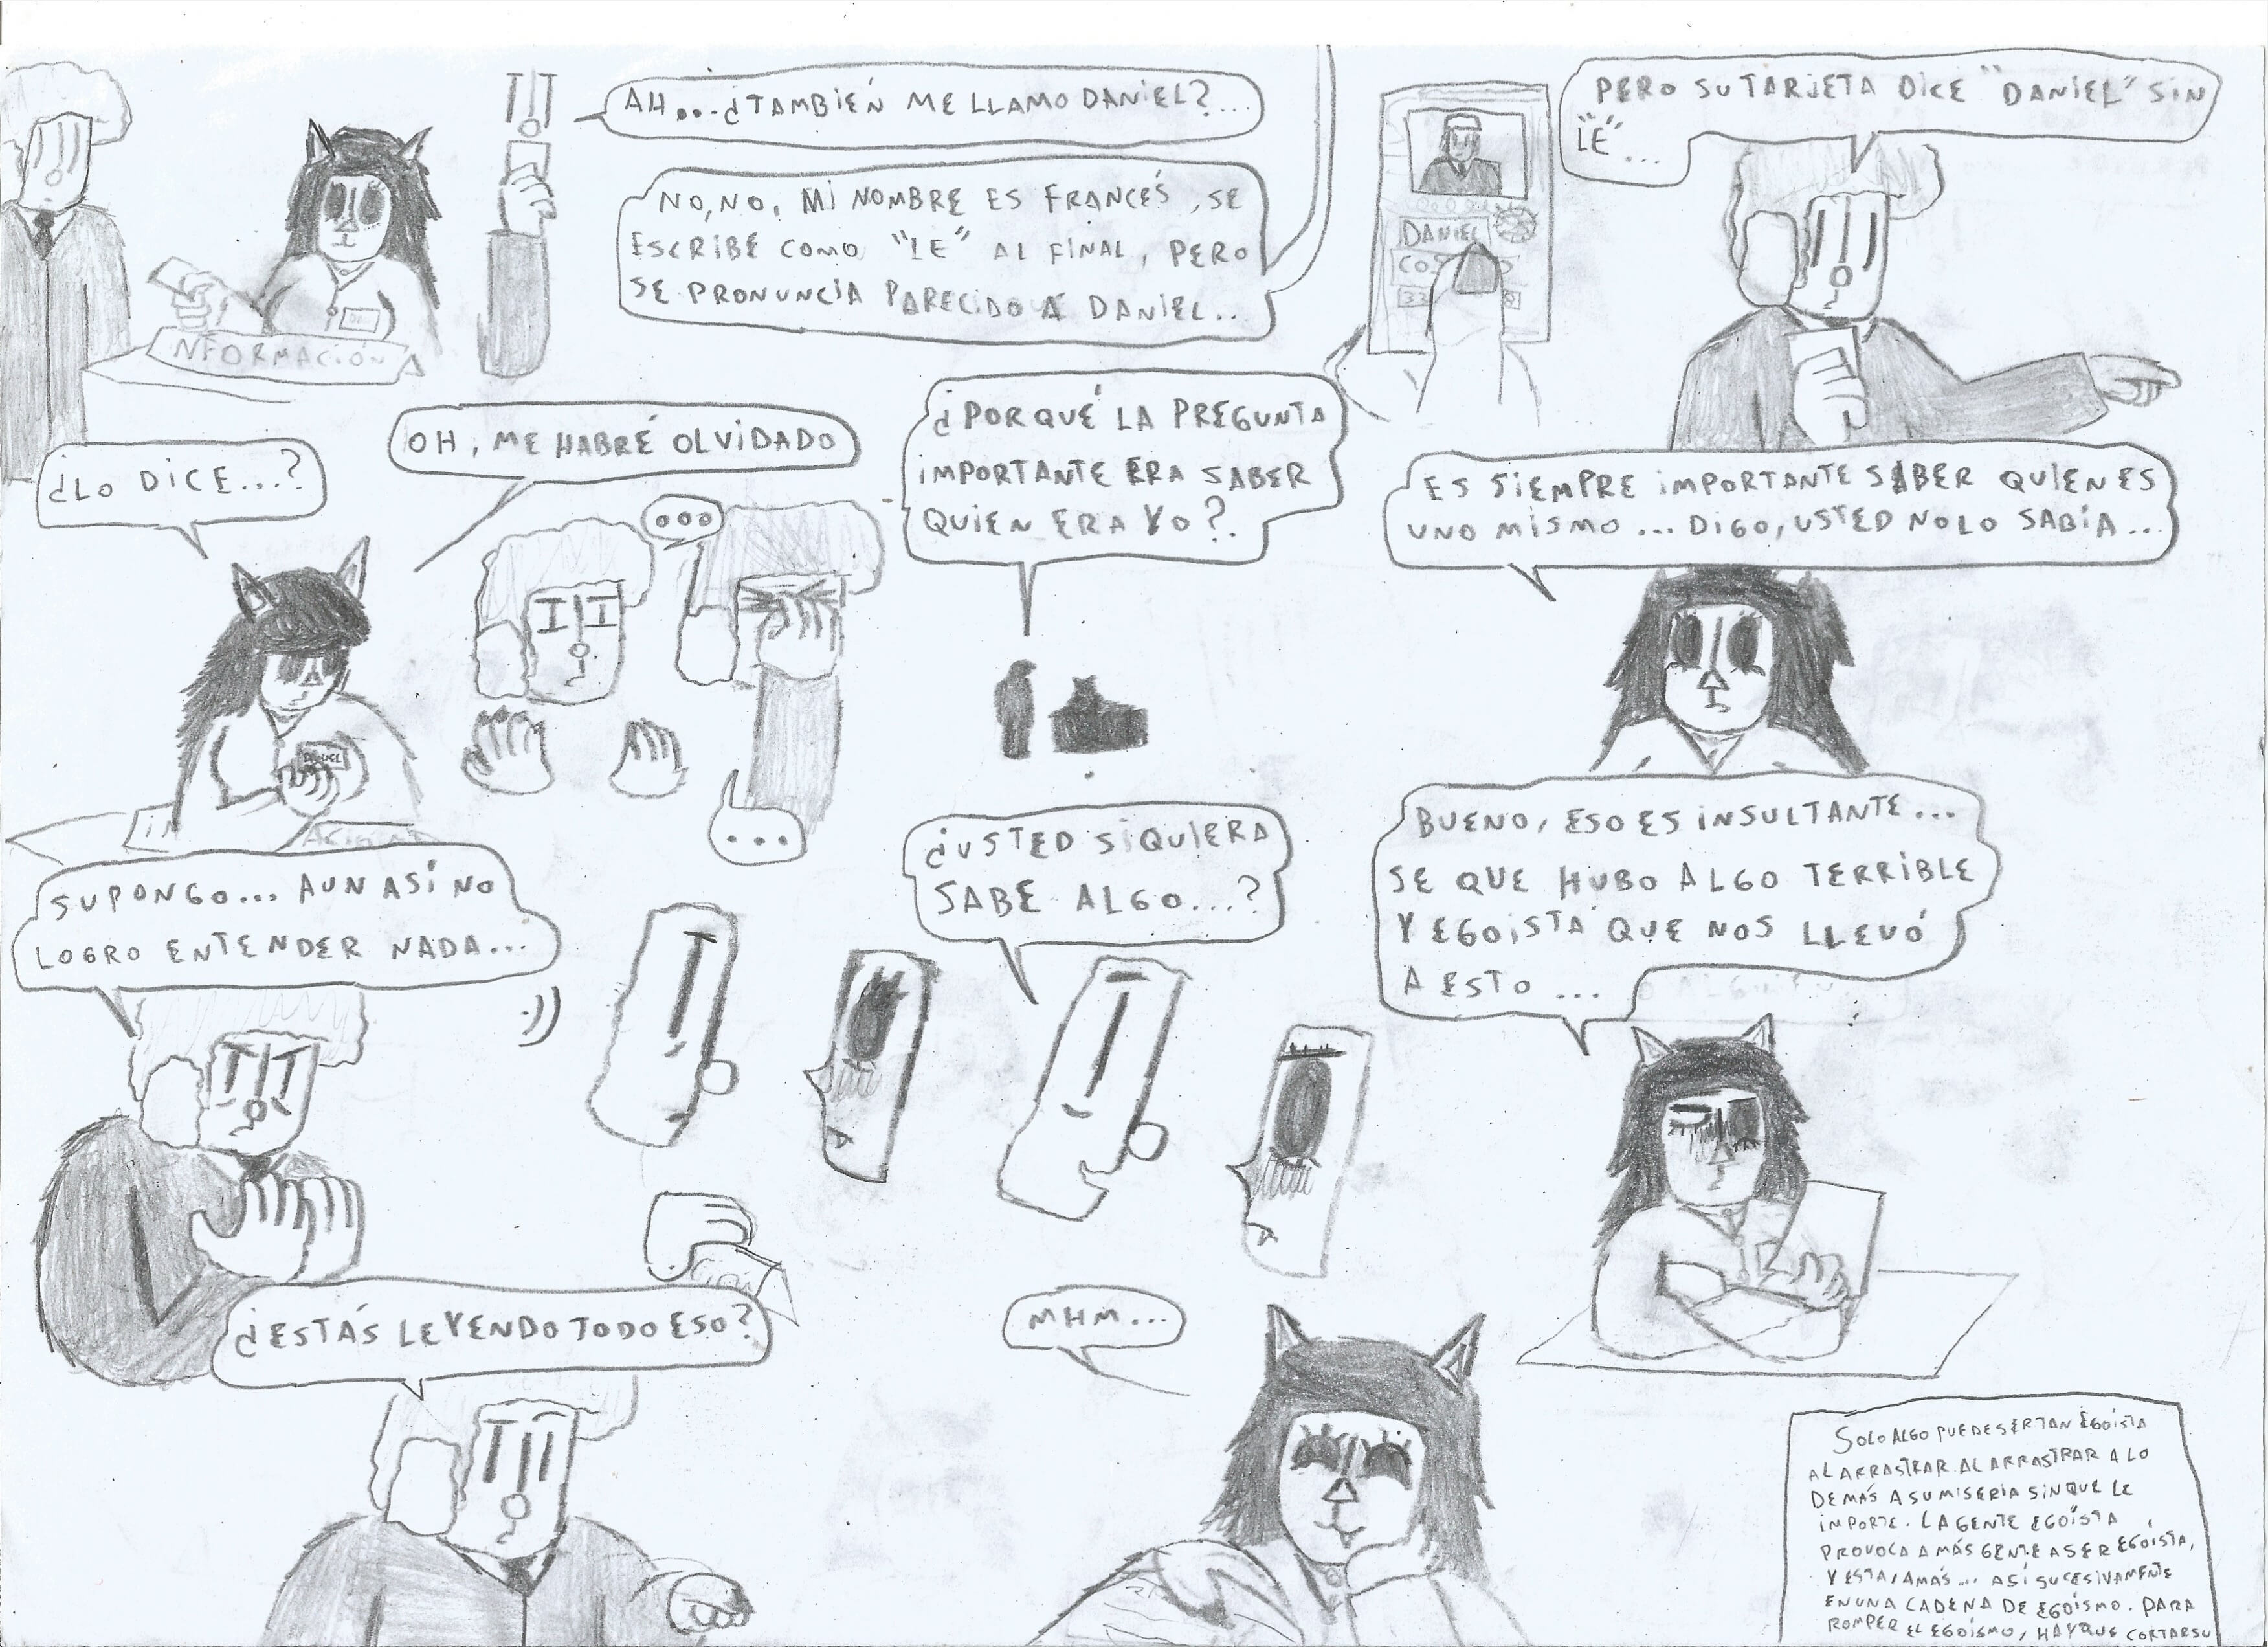 INFORMACIÓN
AH...¿TAMBIÉN ME LLAMO DANIEL?...
NO, NO, MI NOMBRE ES FRANCÉS, SE
ESCRIBE COMO "LE" AL FINAL, PERO
SE PRONUNCIA PARECIDO A DANIEL..
DANIEL
PERO SU TARJETA DICE "DANIEL" SIN
"LE"...
¿LO DICE...?
OH, ME HABRÉ OLVIDADO
...
...
¿PORQUÉ LA PREGUNTA
IMPORTANTE ERA SABER
QUIEN ERA YO?.
ES SIEMPRE IMPORTANTE SABER QUIEN ES
UNO MISMO... DIGO, USTED NO LO SABÍA...
SUPONGO... AUN ASÍ NO
LOGRO ENTENDER NADA...
¿USTED SIQUIERA
SABE ALGO...?
BUENO, ESO ES INSULTANTE...
SE QUE HUBO ALGO TERRIBLE
Y EGOISTA QUE NOS LLEVÓ
A ESTO ...
¿ESTÁS LEYENDO TODO ESO?
MHM...
SOLO ALGO PUEDE SER TAN EGOÍSTA
AL ARRASTRAR AL ARRASTRAR A LO
DEMÁS A SU MISERIA SIN QUE LE
IMPORTE. LA GENTE EGOÍSTA
PROVOCA A MÁS GENTE A SER EGOÍSTA,
Y ESTA, A MÁS... ASÍ SUCESIVAMENTE
EN UNA CADENA DE EGOÍSMO. PARA
ROMPER EL EGOÍSMO, HAY QUE CORTAR SU